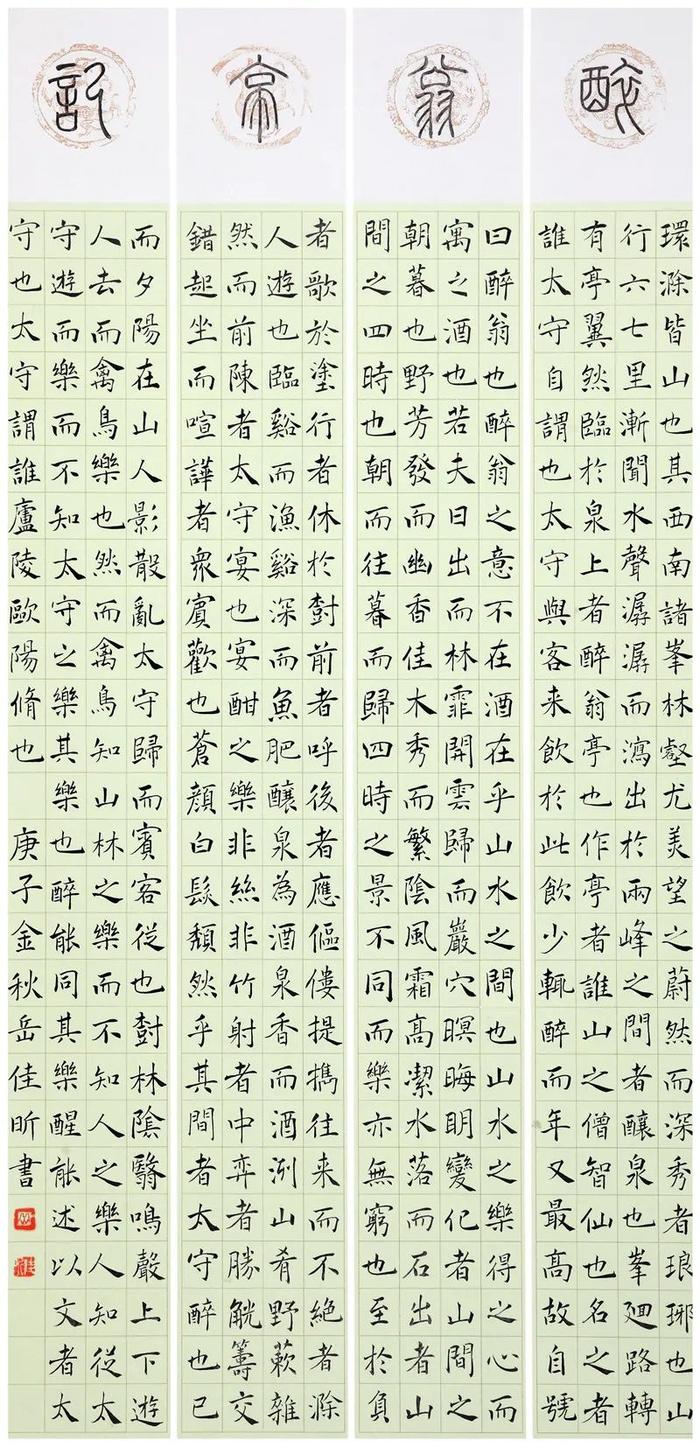 醉翁亭記
環滁皆山也其西南諸峯林壑尤美望之蔚然而深秀者琅琊也山
行六七里漸聞水聲潺潺而瀉出於兩峰之間者釀泉也峯廻路轉
有亭翼然臨於泉上者醉翁亭也作亭者誰山之僧智仙也名之者
誰太守自謂也太守與客来飲於此飲少輒醉而年又最高故自號
曰醉翁也醉翁之意不在酒在乎山水之間也山水之樂得之心而
寓之酒也若夫日出而林霏開雲歸而巖穴暝晦明變化者山間之
朝暮也野芳發而幽香佳木秀而繁陰風霜高潔水落而石出者山
間之四時也朝而往暮而歸四時之景不同而樂亦無窮也至於負
者歌於塗行者休於樹前者呼後者應傴僂提攜往来而不絶者滁
人遊也臨谿而漁谿深而魚肥釀泉為酒泉香而酒洌山肴野蔌雜
然而前陳者太守宴也宴酣之樂非絲非竹射者中弈者勝觥籌交
錯起坐而喧譁者衆賓歡也蒼顏白髮頹然乎其間者太守醉也已
而夕陽在山人影散亂太守歸而賓客從也樹林陰翳鳴聲上下遊
人去而禽鳥樂也然而禽鳥知山林之樂而不知人之樂人知從太
守遊而樂而不知太守之樂其樂也醉能同其樂醒能述以文者太
守也太守謂誰廬陵歐陽脩也 庚子金秋岳佳昕書